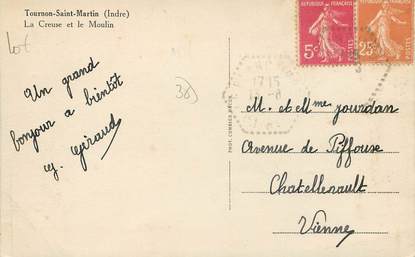 Tournon-Saint-Martin (Indre)
La Creuse et le Moulin
Lot
38)
Un grand
bonjour a bientôt
Giraud
RÉPUBLIQUE FRANÇAISE
5c
RÉPUBLIQUE FRANÇAISE
25c
17 15
M. et Mme Jourdan
Avenue de Piffouse
Chatellerault
Vienne